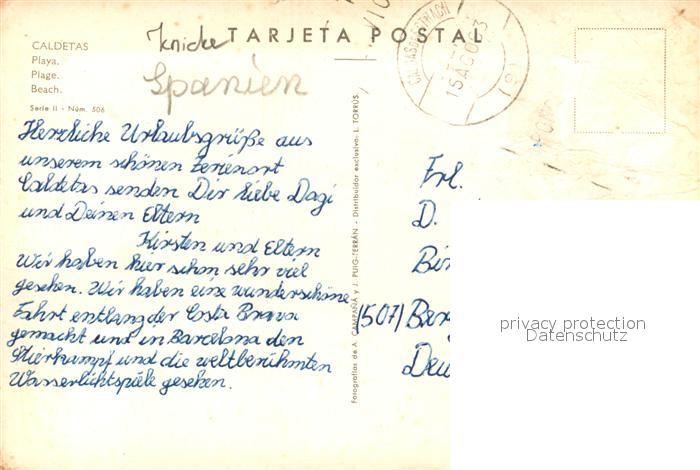 TARJETA POSTAL
CALDETAS
Playa.
Plage.
Beach.
Serie II - Núm. 506
Knicke
Spanien
15 AGO 63
Herzliche Urlaubsgrüße aus
unserem schönen Ferienort
Caldetas senden Dir liebe Dagi
und Deinen Eltern
Kirsten und Eltern
Wir haben hier schon sehr viel
gesehen. Wir haben eine wunderschöne
Fahrt entlang der Costa Brava
gemacht und in Barcelona den
Stierkampf und die weltberühmten
Wasserlichtspiele gesehen.
Fotografías de A. CAMPAÑÁ y J. PUIG-FERRÁN - Distribuidor exclusivo: L. TORRÚS.
Frl.
D.
(507)
privacy protection
Datenschutz